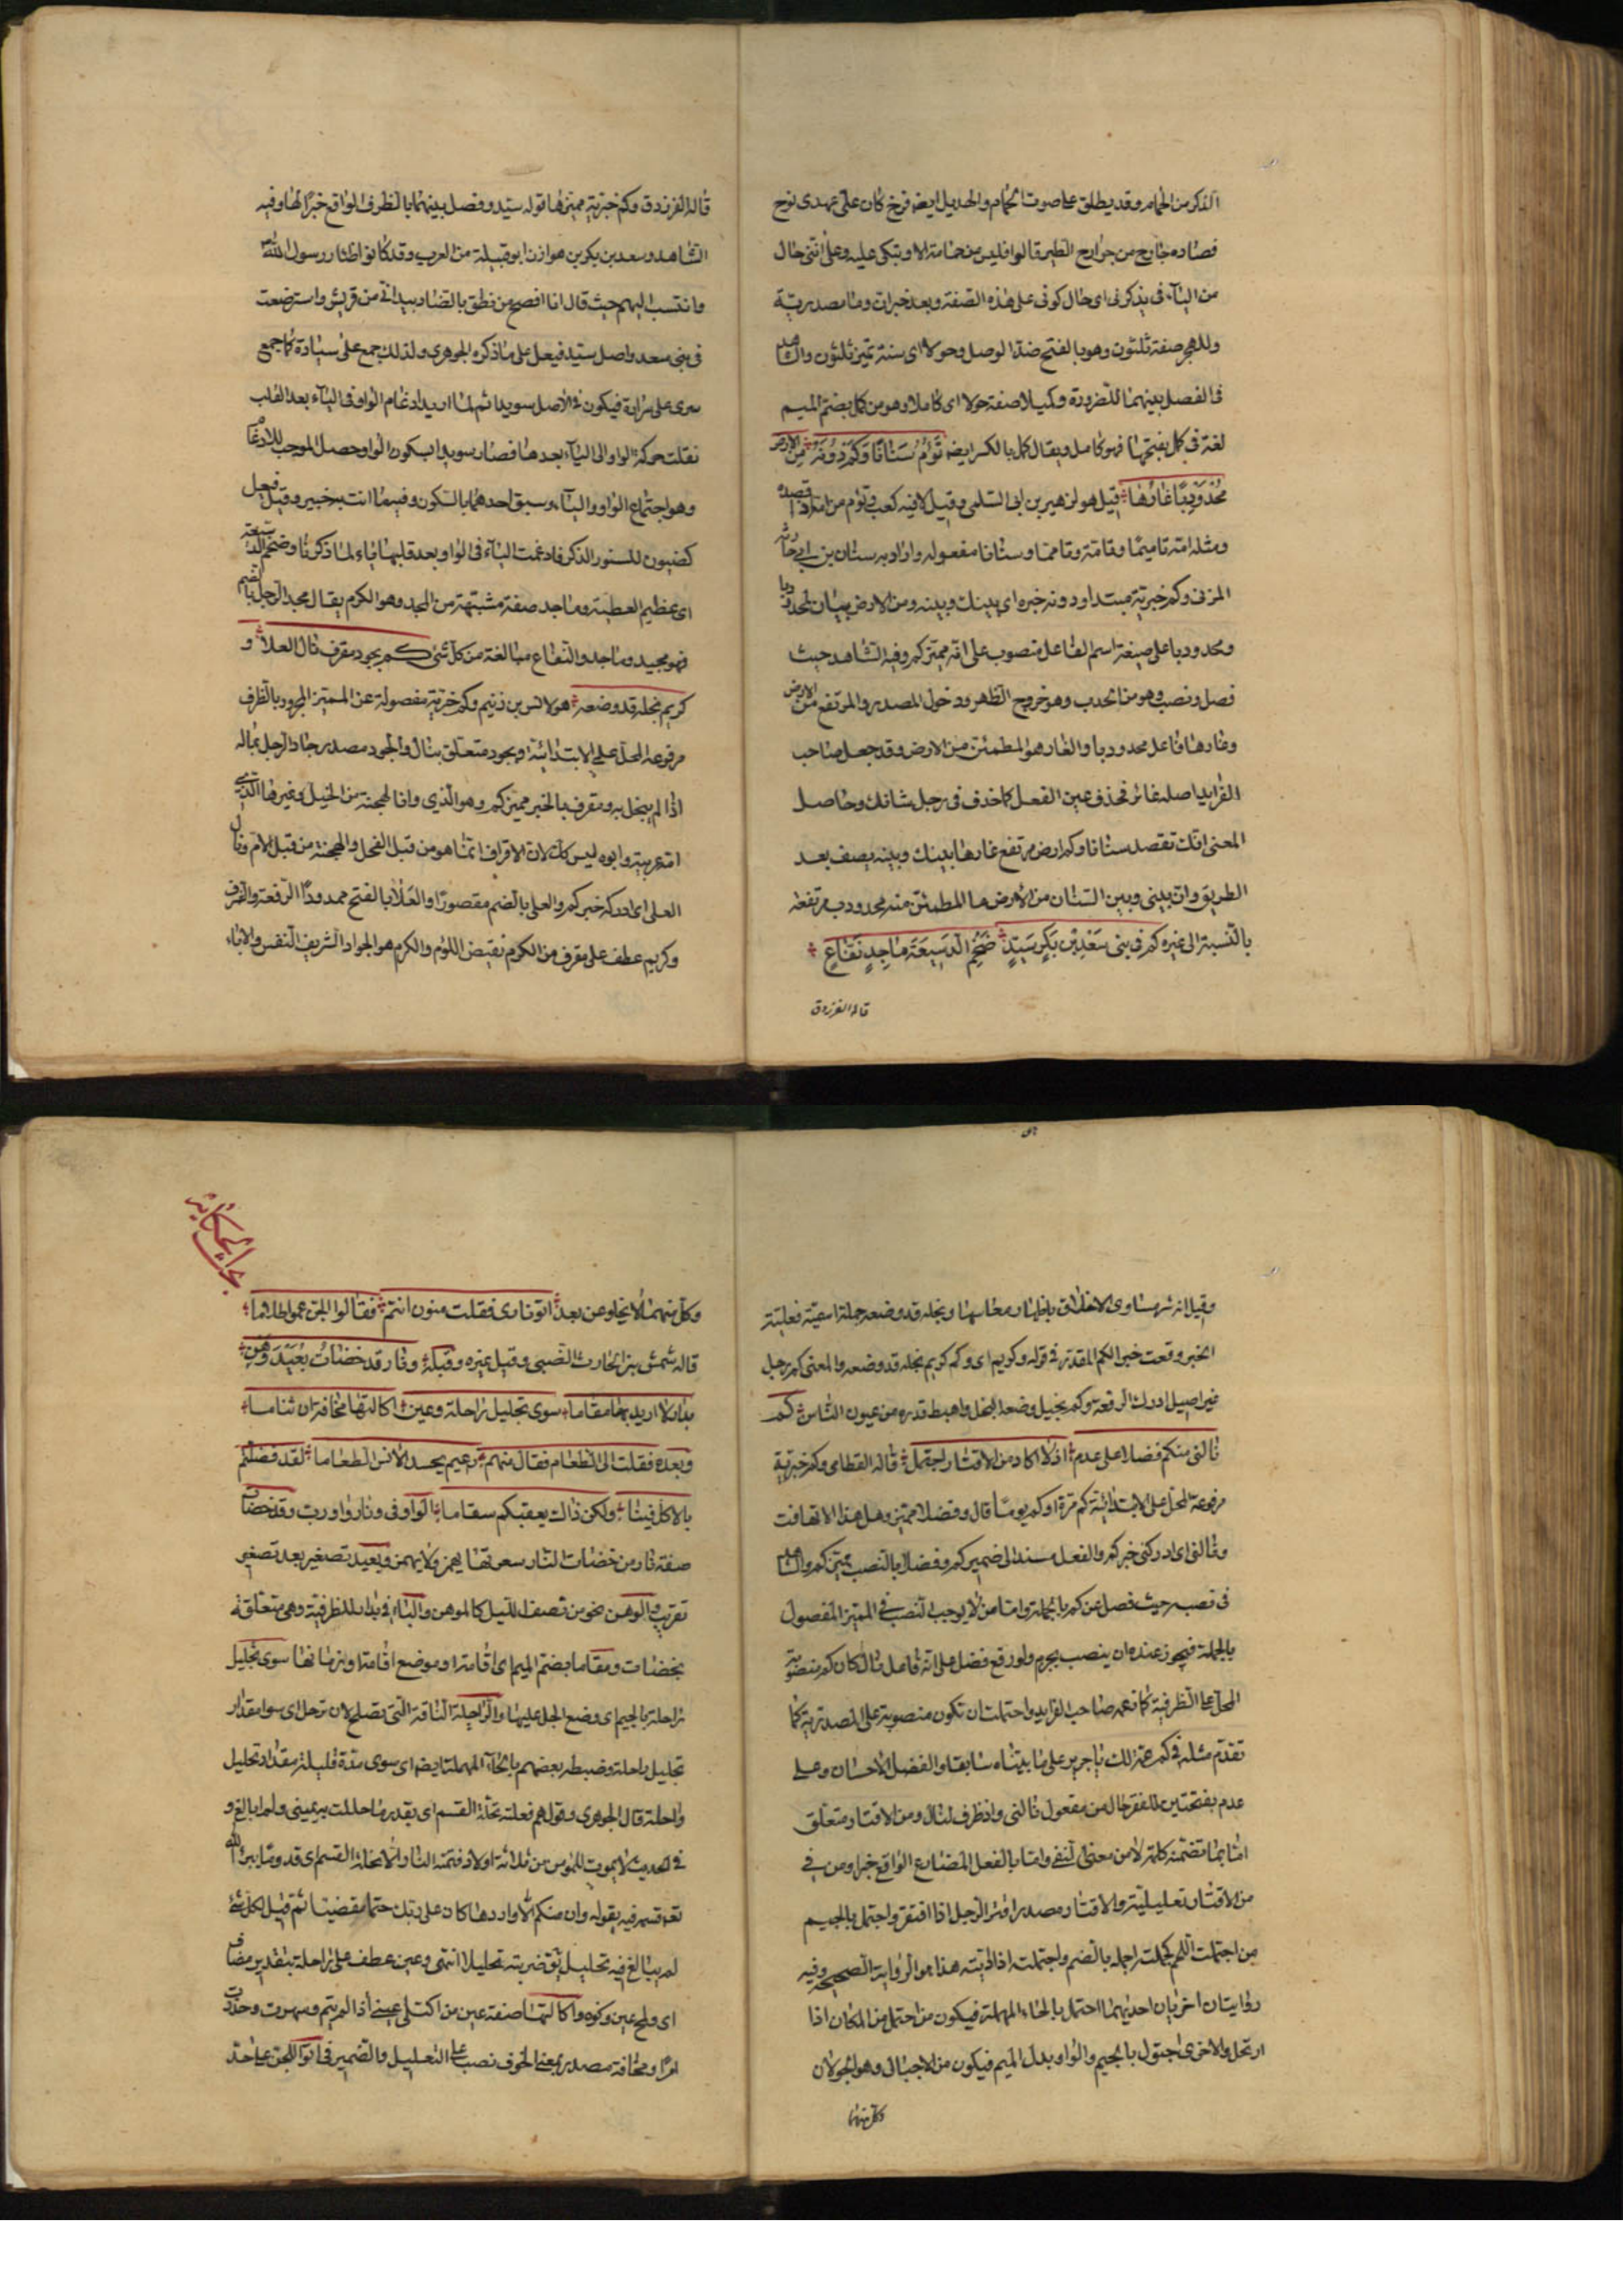 الذكر من الحمام وقد يطلق على صوت الحمام والهديل ايضا فرخ كان على عهدى نوح
فصاده جارح من جوارح الطير قالوا فليس من حمامة الا وتبكى عليه وعلى اننى حال
من الياء فى يذكرنى اى حال كونى على هذه الصفة وبعد خبران وما مصدرية
وللهجر صفة ثلثون وهو بالفتح ضد الوصل وحولا اى سنة تميز ثلثون والشاهد
فى الفصل بينهما للضرورة وكميلا صفة حولا اى كاملا وهو من كمل بضم الميم
لغة فى كمل بفتحها فهو كامل ويقال كمل بالكسر ايضا تَؤُمُّ سَنَانًا وَكَمْ دُونَهُ مِنَ الارض
مُحْدَوْدِبًا غَارُهَا قيل هو لزهير بن ابى السلمى وقيل لابنه كعب وتؤم من امه اذا قصده
ومثله امه تاميما وتامه وتامما وسنانا مفعوله واراد به سنان بن ابى حارثه
المزنى وكم خبرية مبتدا ودونه خبره اى بينك وبينه ومن الارض بيان لمحدودبا
ومحدودبا على صيغة اسم الفاعل منصوب على انه مميز كم وفيه الشاهد حيث
فصل ونصب وهو من الحدب وهو خروج الظهر ودخول الصدر والمرتفع من الارض
وغارها فاعل محدودبا والغار هو المطمئن من الارض وقد جعل صاحب
الفرايد اصله غائر فحذف عين الفعل كما حذف فى رجل شانك وحاصل
المعنى انك تقصد سنانا وكم ارض مرتفع غارها بينك وبينه يصف بعد
الطريق وان بينى وبين السنان من الارض ما المطمئن منه محدودب مرتفعة
بالنسبة الى غيره كم فى بنى سَعْدِ بْنِ بَكْرٍ سَيِّدٍ ضَخْمِ الدَّسِيعَةِ مَاجِدٍ نَفَّاعٍ
قاله الفرزدق
قاله الفرزدق وكم خبرية مميزها قوله سيد وفصل بينهما بالظرف الواقع خبرا لها وفيه
الشاهد وسعد بن بكر بن هوازن ابو قبيلة من العرب وقد كانوا اظئار رسول الله
وانتسب اليهم حيث قال انا افصح من نطق بالضاد بيد انى من قريش واسترضعت
فى بنى سعد واصل سيد فيعل على ما ذكره الجوهرى ولذلك جمع على سيادة كما جمع
سرى على سراة فيكون فى الاصل سويد ثم لما اريد ادغام الواو فى الياء بعد القلب
نقلت حركة الواو الى الياء بعدها فصار سويد بسكون الواو وحصل الموجب للادغام
وهو اجتماع الواو والياء وسبق احدهما بالسكون وفيه ما انت به خبير وقيل فيعل
كضيون للسنور الذكر فادغمت الياء فى الواو بعد قلبها ياء لما ذكرنا وضخم الدسيعة
اى عظيم العطية وماجد صفة مشبهة من المجد وهو الكرم يقال مجد الرجل بالضم
فهو مجيد وماجد والنفاع مبالغة من كل شئ كم بجود مقرف نال العلا و
كريم بخله قد وضعه هو لانس بن زنيم وكم خبرية مفصولة عن المميز المجرور بالظرف
مرفوعة المحل على الابتدائية وبجود متعلق بنال والجود مصدر جاد الرجل بماله
اذا لم يبخل به ومقرف بالخبر مميز كم وهو الذى دانا الهجنة من الخيل وغيرها الذى
امه عربية وابوه ليس كذلك لان الاقراف انما هو من قبل الفحل والهجنة من قبل الام ونال
العلى اى ادركه خبر كم والعلى بالضم مقصورا والعلاء بالفتح ممدودا الرفعة والشرف
وكريم عطف على مقرف من الكرم نقيض اللؤم والكرم هو الجواد الشريف النفس والاباء
وقيل انه ترساوى الاخلاق باظهار محاسنها وبخله قد وضعه جملة اسمية فعلية
الخبر وقعت خبر الكم المقدر فى قوله وكريم اى وكم كريم بخله قد وضعه والمعنى كم رجل
غير اصيل ادرك الرفعة وكم بخيل وضعه البخل واهبط قدره من عيون الناس كم
نالنى منكم فضلا على عدم اذ لا اكاد من الاقتار اجتمل قاله القطامى وكم خبرية
مرفوعة المحل على الابتدائية كم مرة او كم يوما قال وفضلا مميز وهل هذا الا تهافت
ونالنى اى ادركنى خبر كم والفعل مسند الى ضمير كم وفضلا بالنصب مميز كم والشاهد
فى نصبه حيث فصل عن كم بالجملة واما من لا يوجب النصب فى المميز المفصول
بالجملة فيجوز عنده ان ينصب ويجر ولو رفع فضل على انه فاعل نال كان كم منصوبة
المحل على الظرفية كما زعمه صاحب الفرايد واحتملت ان تكون منصوبة على المصدرية كما
تقدم مثله فى كم عمة لك يا جرير على ما بيناه سابقا والفضل الاحسان وعلى
عدم بفتحتين للفقر حال من مفعول نالنى واذ ظرف لنال ومن الاقتار متعلق
اما بما تضمنه كلمة لا من معنى النفى واما بالفعل المضارع الواقع خبرا ومن فى
من الاقتار تعليلية والاقتار مصدر اقتر الرجل اذا افتقر واجتمل بالجيم
من اجتملت الشحم كجملت اجمله بالضم واجتملته اذا اذبته هذا هو الرواية الصحيحة وفيه
روايتان اخريان احديهما احتمل بالحاء المهملة فيكون من احتمل من المكان اذا
ارتحل والاخرى اجتول بالجيم والواو بدل الميم فيكون من الاجتيال وهو الجولان
وكل منهما
وكل منهما لا يخلو عن بعد اتوا نارى فقلت منون انتم فقالوا الجن عموا ظلاما
قاله شمس بن الحارث الضبى وقيل غيره وقبله ونار قد خضات بعيد وهن
بدار لا اريد بها مقاما سوى تحليل راحلة وعين اكالئها مخافة ان تناما
وبعده فقلت الى الطعام فقال منهم زعيم يحسد الانس الطعاما لقد فضلتم
بالاكل فينا ولكن ذاك يعقبكم سقاما الواو فى ونار واو رب وقد خضات
صفة نار من خضات النار سعرتها يهمز ولا يهمز وبعيد تصغير بعد تصغير
تقريب والوهن نحو من نصف الليل كالموهن والباء فى بدار للظرفية وهى متعلقة
بخضات ومقاما بضم الميم اى اقامة او موضع اقامة او زمانها سوى تحليل
راحلة بالجيم اى وضع الجل عليها والراحلة الناقة التى تصلح لان ترحل اى سوا مقدار
تحليل راحلة وضبطه بعضهم بالحاء المهملة ايضا اى سوى مدة قليلة مقدار تحليل
راحلة قال الجوهرى وقولهم فعلته تحلة القسم اى بقدر ما حللت به يمينى ولم ابالغ و
فى الحديث لا يموت للمؤمن من ثلاثة اولاد فتمسه النار الا تحلة القسم اى قدر ما يبر الله
تعالى قسمه فيه بقوله وان منكم الا واردها كان على ربك حتما مقضيا ثم قيل لكل شئ
لم يبالغ فيه تحليل يق ضربته تحليلا انتهى وعين عطف على راحلة بتقدير مضاف
اى ولمح عين وكوه واكالئها صفة عين من اكتلى عينى اذا لم ينم وسهرت وحذرت
امرا ومخافة مصدر بمعنى الخوف نصب على التعليل والضمير فى اتوا للجن على حد